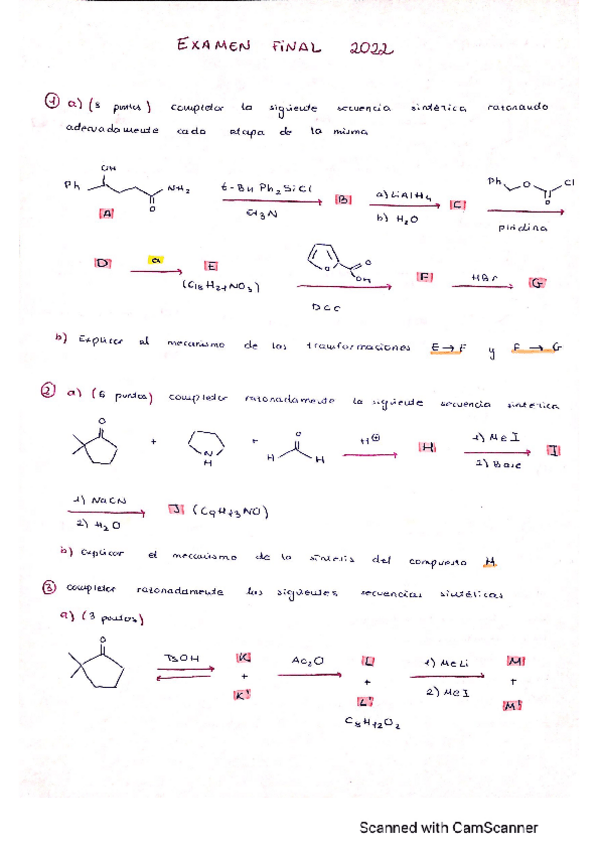 EXAMEN FINAL 2022
① a) (8 puntos) completar la siguiente secuencia sintética razonando
adecuadamente cada etapa de la misma
OH
Ph NH2 O
[A]
t-Bu Ph2SiCl
Et3N
[B]
a) LiAlH4
b) H2O
[C]
Ph O Cl O
piridina
D a E
(C18H21NO3)
O O OH
DCC
[F]
HBr
G
b) Explicar el mecanismo de las transformaciones E → F y F → G
② a) (6 puntos) completar razonadamente la siguiente secuencia sintética
O + N H + O H H
H⊕
[H]
1) MeI
2) Base
I
1) NaCN
2) H2O
J (C9H13NO)
b) explicar el mecanismo de la síntesis del compuesto H
③ completar razonadamente las siguientes secuencias sintéticas
a) (3 puntos)
O
TsOH
K + K'
Ac2O
L + L'
C8H12O2
1) MeLi
2) MeI
M + M'
Scanned with CamScanner